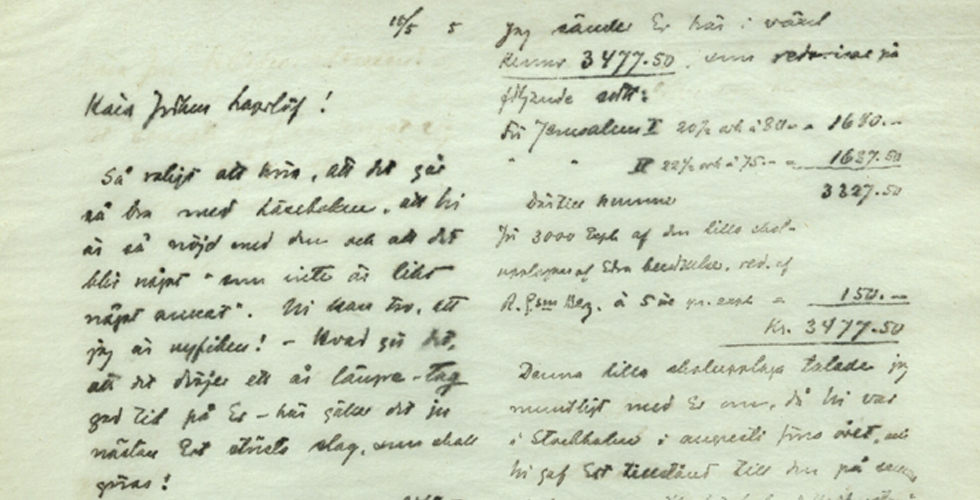 10/5 5
Kära Fröken Lagerlöf!
Så roligt att höra, att det går
så bra med läseboken, att Ni
är så nöjd med den och att det
blir något "som inte är likt
något annat". Ni kan tro, att
jag är nyfiken! – Hvad gör det,
att det dröjer ett år längre – Tag
god tid på Er – här gäller det ju
nästan Ert största slag, som skall
göras!
Jag sänder Er här i växel
Kronor 3477.50, som redovisas på
följande sätt:
För Jerusalem I 20/2 ark à 80.– 1640.–
" " II 22/2 ark à 75.– 1687.50
3327.50
Därtill kommer
för 3000 Expl af den lilla skol-
upplagan af Edra berättelser, red. af
à 5 öre pr. expl = 150.–
Kr. 3477.50
Denna lilla skolupplaga talade jag
muntligt med Er om, då Ni var
i Stockholm i augusti förra året, och
Ni gaf Ert tillstånd till den på